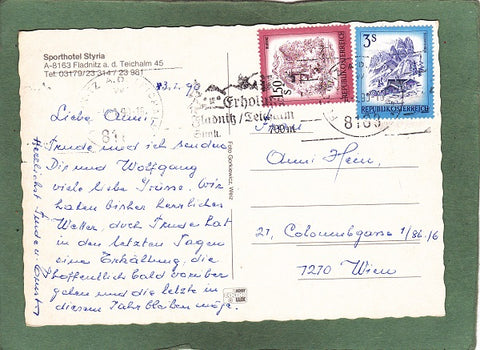 Sporthotel Styria
A-8163 Fladnitz a. d. Teichalm 45
Tel. 03179/23 314 / 23 981
Liebe Anni,
Trude und ich senden
Dir und Wolfgang
viele liebe Grüsse. Wir
haben bisher herrliches
Wetter, doch Trude hat
in den letzten Tagen
eine Erkältung, die
hoffentlich bald vorüber
gehen und die letzte in
diesem Jahr bleiben möge.
Herzlichst Trude u.
Foto Gorkiewicz, Weiz
Erholung
Fladnitz/Teichalm
700 m
8163
1.50 S
REPUBLIK ÖSTERREICH
3S
REPUBLIK ÖSTERREICH
Frau
Anni
21, Colonusgasse 1/86/6
1210 Wien